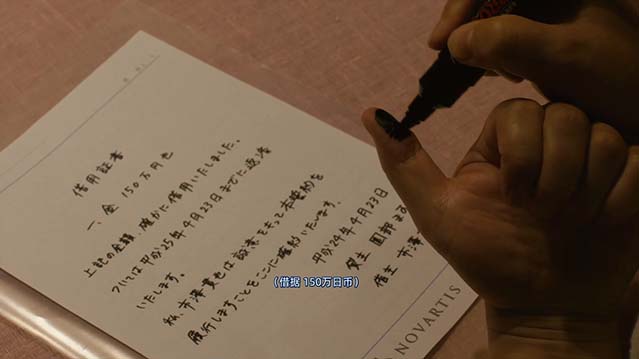 借用証書
一、金 150万円也
上記の金額、確かに借用いたしました。
ついては平成25年4月23日までに返済
いたします。
私、市澤貴也は誠意をもって本誓約を
履行しますことをここに誓約いたします。
平成24年4月23日
貸主 園部
借主 市澤
NOVARTIS
(借据 150万日币)